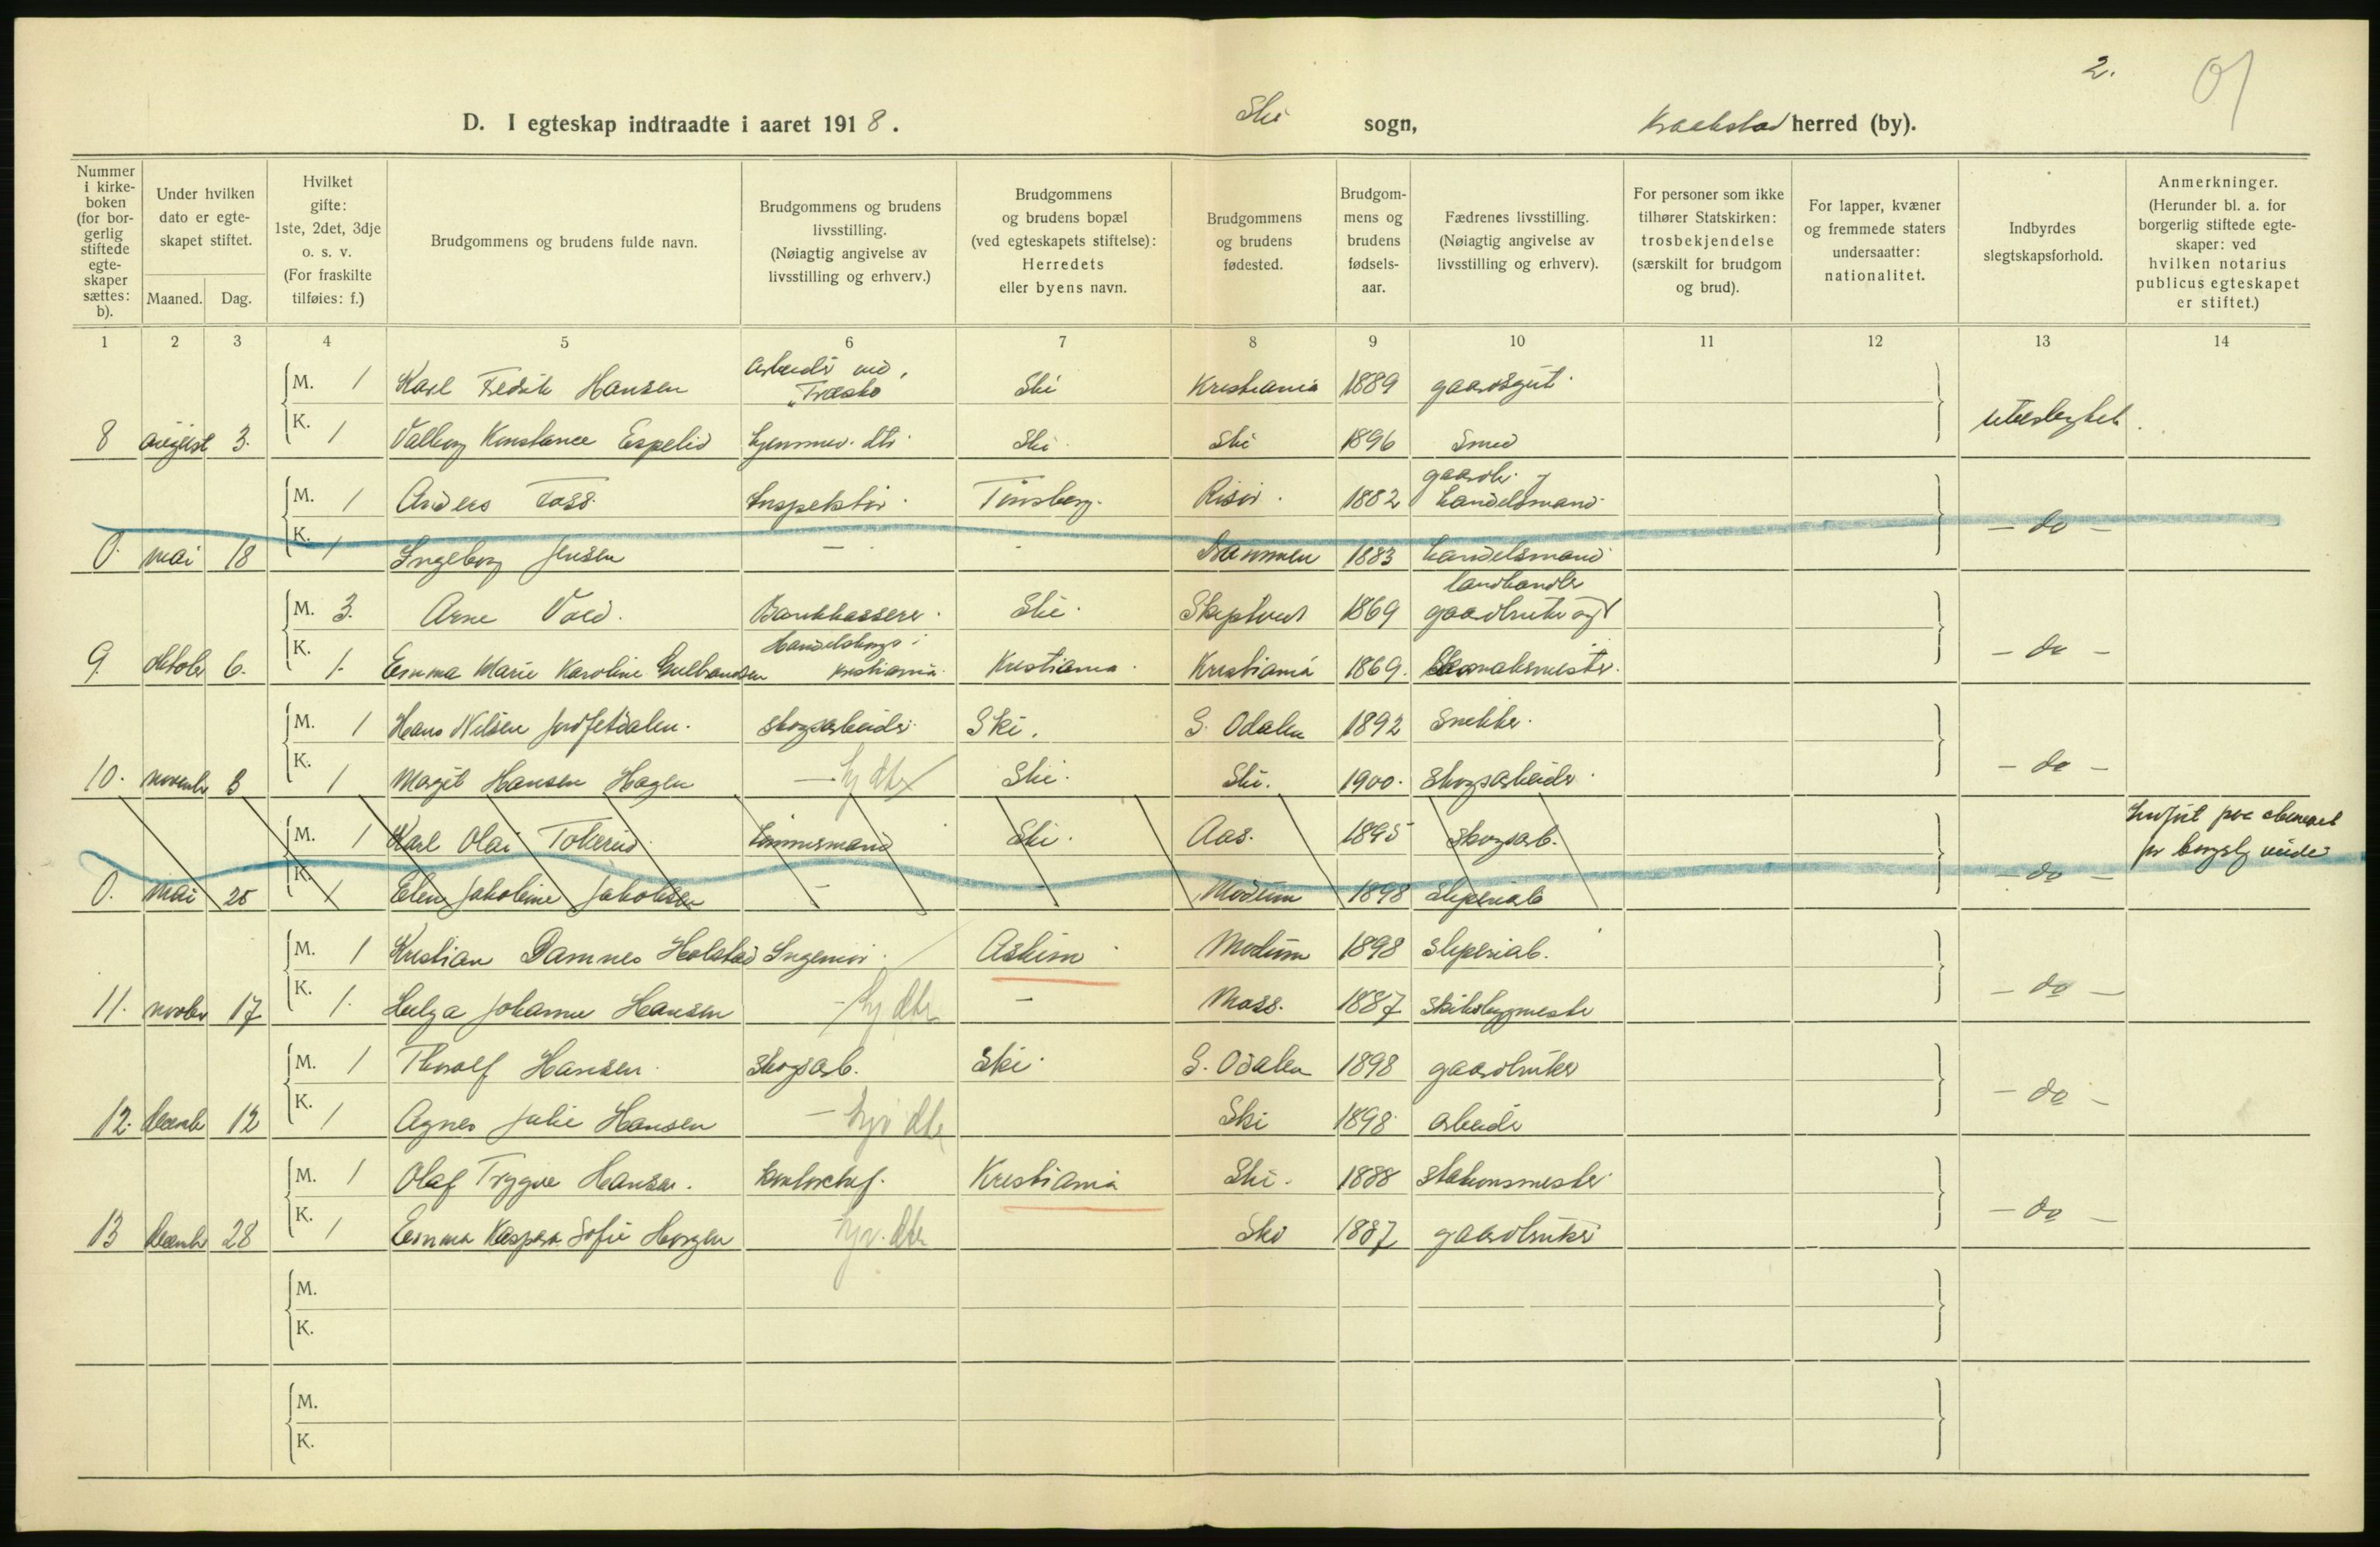 2.
D. I egteskap indtraadte i aaret 1918. Ski sogn, Kraakstad herred (by).
Nummer i kirkeboken (for borgerlig stiftede egteskaper sættes: b).
Under hvilken dato er egteskapet stiftet.
Maaned. Dag.
Hvilket gifte: 1ste, 2det, 3dje o. s. v. (For fraskilte tilføies: f.)
Brudgommens og brudens fulde navn.
Brudgommens og brudens livsstilling. (Nøiagtig angivelse av livsstilling og erhverv.)
Brudgommens og brudens bopæl (ved egteskapets stiftelse): Herredets eller byens navn.
Brudgommens og brudens fødested.
Brudgommens og brudens fødselsaar.
Fædrenes livsstilling. (Nøiagtig angivelse av livsstilling og erhverv).
For personer som ikke tilhører Statskirken: trosbekjendelse (særskilt for brudgom og brud).
For lapper, kvæner og fremmede staters undersaatter: nationalitet.
Indbyrdes slegtskapsforhold.
Anmerkninger. (Herunder bl. a. for borgerlig stiftede egteskaper: ved hvilken notarius publicus egteskapet er stiftet.)
1 2 3 4 5 6 7 8 9 10 11 12 13 14
M. 1 Karl Fredrik Hansen Ski Kristiania 1889 gaardsgut
8 august 3. K. 1 Valborg Konstance Espelid hjemmev. dtr. Ski Ski 1896 Smed
M. 1 Anders Foss Inspektør Tønsberg. Risør. 1882 handelsmand
0. mai 18 K. 1 Ingeborg Jensen — Drammen 1883 handelsmand — do —
M. 3. Arne Vold. Bankkasserer. Ski. Skiptvedt 1869 landhandler gaardbruker og
9. oktober 6. K. 1. Emma Marie Karoline Gulbrandsen Kristiania Kristiania. Kristiania 1869. — do —
M. 1 Hans Nilsen skogsarbeider Ski. S. Odalen 1892 Snekker.
10. novembr 3 K. 1 Margit Hansen Hagen — hj dtr Ski. Ski. 1900. Skogsarbeider. — do —
M. 1 Karl Olai Tokerud Tømmermand Ski. Aas. 1895 Skogsarb.
0. mai 25 K. 1 Elen Jakobine Jakobsen — — Modum 1898 Sliperiarb — do —
M. 1 Kristian Damnes Holstad Ingeniør. Askim Modum 1898 Sliperiarb.
11. novbr 17 K. 1. Helga Johanne Hansen — hj dtr — Moss. 1887 — do —
M. 1 Thoralf Hansen. Skogsarb. Ski. S. Odalen 1898 gaardbruker
12. decembr 12 K. 1 Agnes Julie Hansen — hjv dtr Ski 1898 arbeider — do —
M. 1 Olaf Trygve Hansen. Kontorchef. Kristiania Ski. 1888 Stationsmester
13 decembr 28 K. 1 Emma Kaspara Sofie Horgen hjv. dtr Ski 1887 gaardbruker — do —
M.
K.
M.
K.